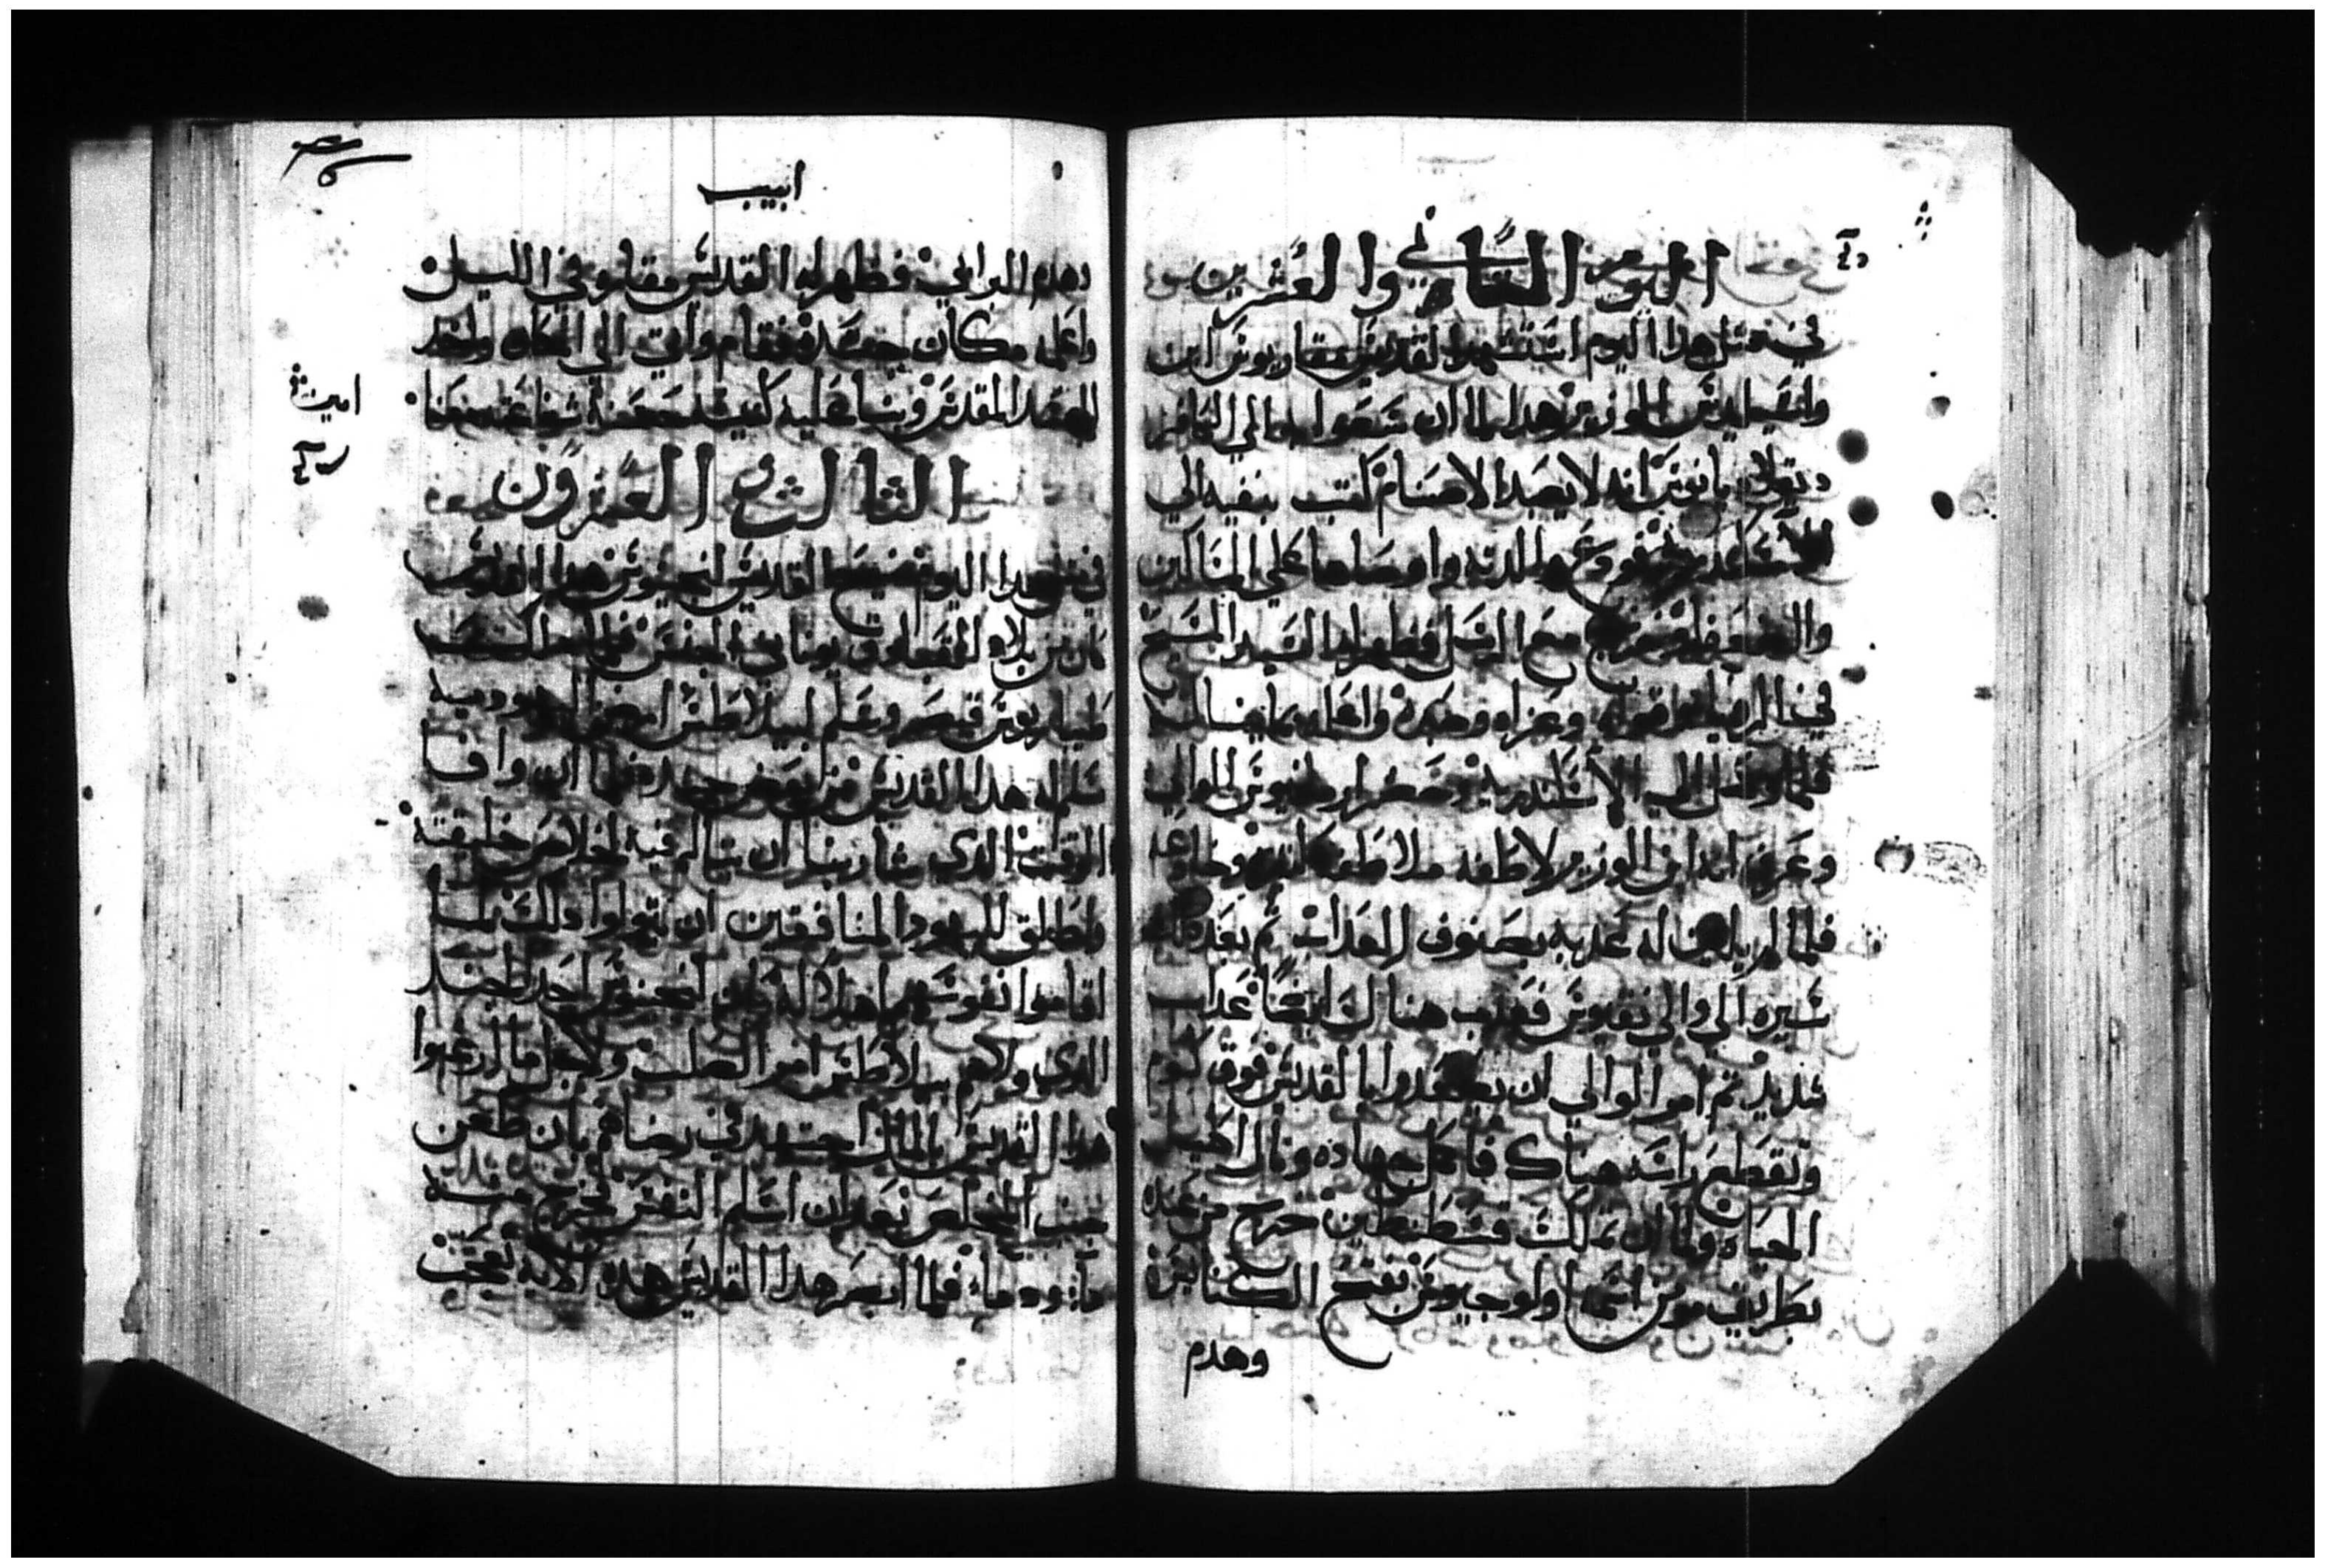 اليوم الثاني والعشرين
في مثل هذا اليوم استشهد القديس مقاريوس ابن
واسيليدس الوزير هدا لما ان سعوا به الي الكافر
دقلاديانوس انه لا يعبد الاصنام كتب بنفيه الي
الاسكندريه وودع والدته واوصاها علي المساكين
والضعفا وخرج مع الرسل فظهر له السيد المسيح
في الرويا وقواه وعزاه ووعده واعلمه بما يناله
فلما وصل الي الاسكندريه وحضر ارمانيوس الوالي
وعرف انه ابن الوزير لاطفه ملاطفه كتيره وخادعه
فلما لم يلين له عذبه بصنوف العداب ثم بعد ذلك
سيره الي والي نقيوس فعذب هناك ايضا عداب
شديد ثم امر الوالي ان يصعدوا بالقديس فوق كوم
وتقطع راسه هناك فاكمل جهاده ونال اكليل
الحياه ولما ان ملك قسطنطين خرج من عنده
بطريق مومن اسمه اولوجيوس بفتح الكنايس
وهدم
ابيب
وهدم البرابي فظهر له القديس مقاريوس في الليل
واعلمه مكان جسده فقام واتي الي المكان واخذ
الجسد المقدس وبنا عليه كنيسه حسنه شفاعته معنا
امين
الثالث والعشرون
في مثل هذا اليوم تنيح القديس لنجينوس هدا القديس
كان من بلاد القبادوق يوناني الجنس فلما ملك
طيباريوس قيصر وقلد بيلاطس ارض اليهوديه
سلم له هدا القديس من بعض جنده فلما ان وافا
الوقت الدي شا ربنا ان يتالم فيه لخلاص خليقته
واطلق لليهود المنافقين ان يتولوا ذلك بما
اقاموا نفوسهم اهلا له كان لنجينوس احد الجند
الدي ولاهم بيلاطس امر الصلب ولاجل ما ارغبوا
هدا القديس بالمال اجتهد في رضاهم بان طعن
جنب المخلص بعد ان اسلم النفس فخرج منه
ماء ودماء فلما ابصر هدا القديس هده الايه تعجب